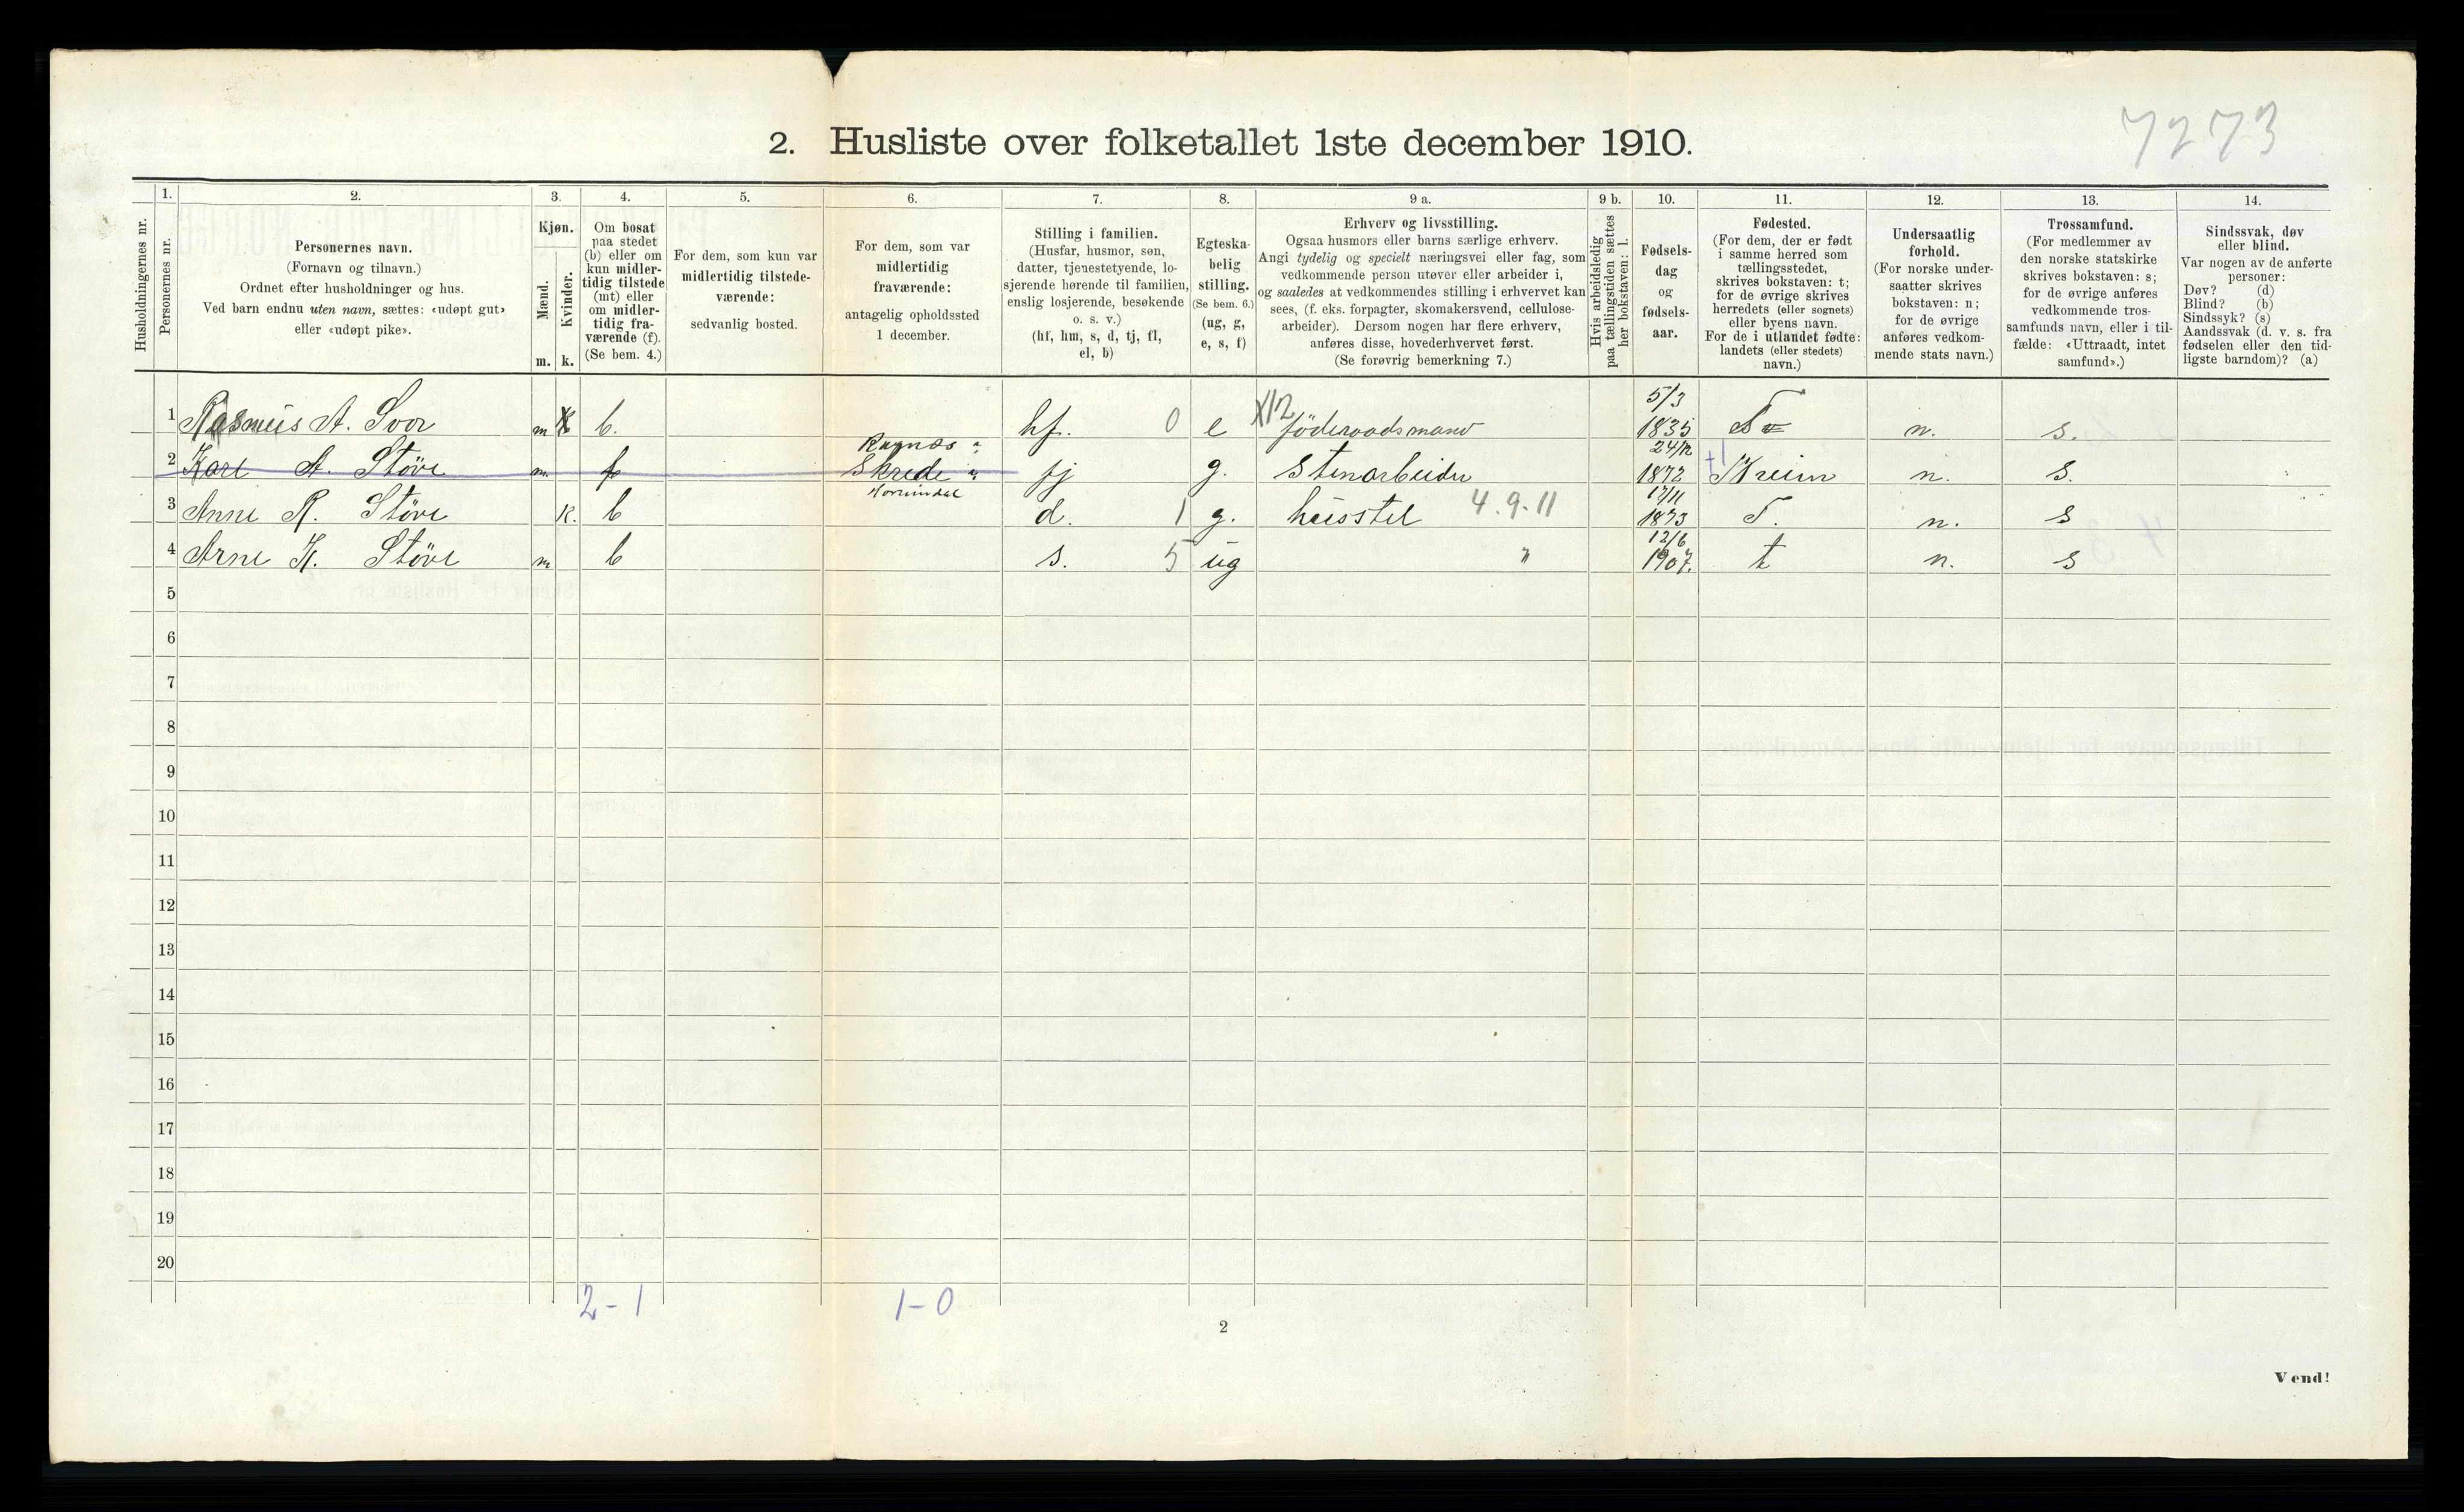 7273
2. Husliste over folketallet 1ste december 1910.
Husholdningernes nr.
1.
Personernes nr.
2.
Personernes navn.
(Fornavn og tilnavn.)
Ordnet efter husholdninger og hus.
Ved barn endnu uten navn, sættes: «udøpt gut»
eller «udøpt pike».
3.
Kjøn.
Mænd.
Kvinder.
m. k.
4.
Om bosat
paa stedet
(b) eller om
kun midler-
tidig tilstede
(mt) eller
om midler-
tidig fra-
værende (f).
(Se bem. 4.)
5.
For dem, som kun var
midlertidig tilstede-
værende:
sedvanlig bosted.
6.
For dem, som var
midlertidig
fraværende:
antagelig opholdssted
1 december.
7.
Stilling i familien.
(Husfar, husmor, søn,
datter, tjenestetyende, lo-
sjerende hørende til familien,
enslig losjerende, besøkende
o. s. v.)
(hf, hm, s, d, tj, fl,
el, b)
8.
Egteska-
belig
stilling.
(Se bem. 6.)
(ug, g,
e, s, f)
9 a.
Erhverv og livsstilling.
Ogsaa husmors eller barns særlige erhverv.
Angi tydelig og specielt næringsvei eller fag, som
vedkommende person utøver eller arbeider i,
og saaledes at vedkommendes stilling i erhvervet kan
sees, (f. eks. forpagter, skomakersvend, cellulose-
arbeider). Dersom nogen har flere erhverv,
anføres disse, hovederhvervet først.
(Se forøvrig bemerkning 7.)
9 b.
Hvis arbeidsledig
paa tællingstiden sættes
her bokstaven: l.
10.
Fødsels-
dag
og
fødsels-
aar.
11.
Fødested.
(For dem, der er født
i samme herred som
tællingsstedet,
skrives bokstaven: t;
for de øvrige skrives
herredets (eller sognets)
eller byens navn.
For de i utlandet fødte:
landets (eller stedets)
navn.)
12.
Undersaatlig
forhold.
(For norske under-
saatter skrives
bokstaven: n;
for de øvrige
anføres vedkom-
mende stats navn.)
13.
Trossamfund.
(For medlemmer av
den norske statskirke
skrives bokstaven: s;
for de øvrige anføres
vedkommende tros-
samfunds navn, eller i til-
fælde: «Uttraadt, intet
samfund».)
14.
Sindssvak, døv
eller blind.
Var nogen av de anførte
personer:
Døv? (d)
Blind? (b)
Sindssyk? (s)
Aandssvak (d. v. s. fra
fødselen eller den tid-
ligste barndom)? (a)
1 Rasmus A. Svor m k b. hf. 0 e X12 föderaadsmand 5/3 1835 T n. s.
2 Kare A. Störe m. f Skrede fj g. Stenarbeider 1872 Breim n. s.
3 Anne R. Störe k. b d. 1 g. husstel 4.9.11 17/11 1873 T. n. s
4 Arne K. Störe m b s. 5 ug " 12/6 1907. t n. s
5
6
7
8
9
10
11
12
13
14
15
16
17
18
19
20
2-1 1-0
2
Vend!